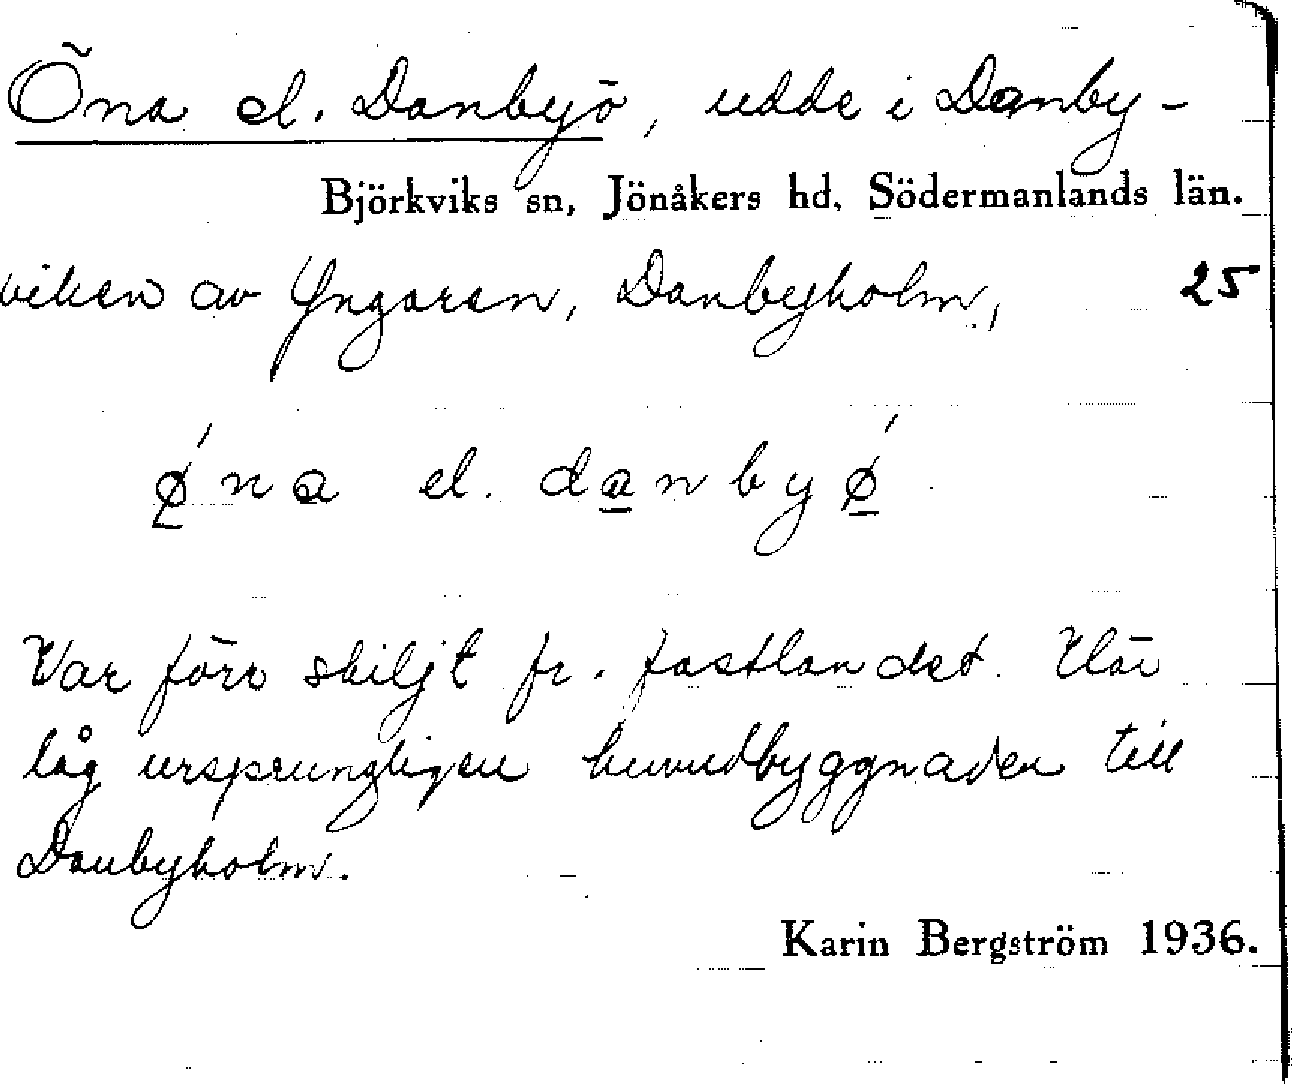 Öna el. Danbyö, udde i Danby-
Björkviks sn, Jönåkers hd, Södermanlands län.
viken av Yngaren, Danbyholm, 25
ǿna el. danbyǿ.
Var förr skiljt fr. fastlandet. Här
låg ursprungligen huvudbyggnaden till
Danbyholm.
Karin Bergström 1936.